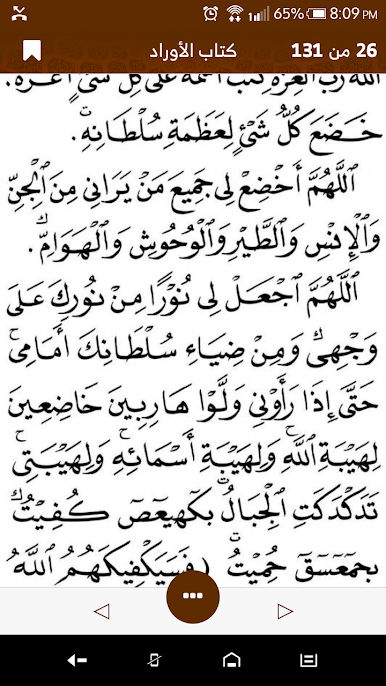 65% 8:09 PM
26 من 131 كتاب الأوراد
الله رب العزة كتب اسمه على كل شئ أعزه.
خَضَعَ كُلُّ شَئٍ لِعَظَمَةِ سُلْطَانِهِ.
اَللَّهُمَّ أَخْضِعْ لِى جَمِيعَ مَنْ يَرَانِى مِنَ ٱلْجِنِّ
وَٱلْإِنْسِ وَٱلطَّيْرِ وَٱلْوُحُوشِ وَٱلْهَوَامِّ.
اَللَّهُمَّ ٱجْعَلْ لِى نُورًا مِنْ نُورِكَ عَلَى
وَجْهِى وَمِنْ ضِيَاءِ سُلْطَانِكَ أَمَامِى
حَتَّى إِذَا رَأَوْنِى وَلَّوْا هَارِبِينَ خَاضِعِينَ
لِهَيْبَةِ ٱللَّهِ وَلِهَيْبَةِ أَسْمَائِهِ وَلِهَيْبَتِى
تَدَكْدَكَتِ ٱلْجِبَالُ بِكَهيعَص كُفِيْتُ
بِحمعسق حُمِيْتُ (فَسَيَكْفِيكَهُمُ ٱللَّهُ